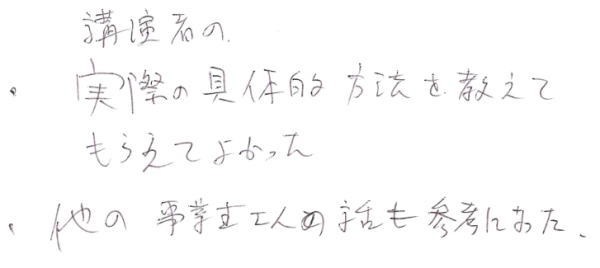 講演者の
・実際の具体的方法を教えて
もらえてよかった
・他の事業主さんの話も参考になった。